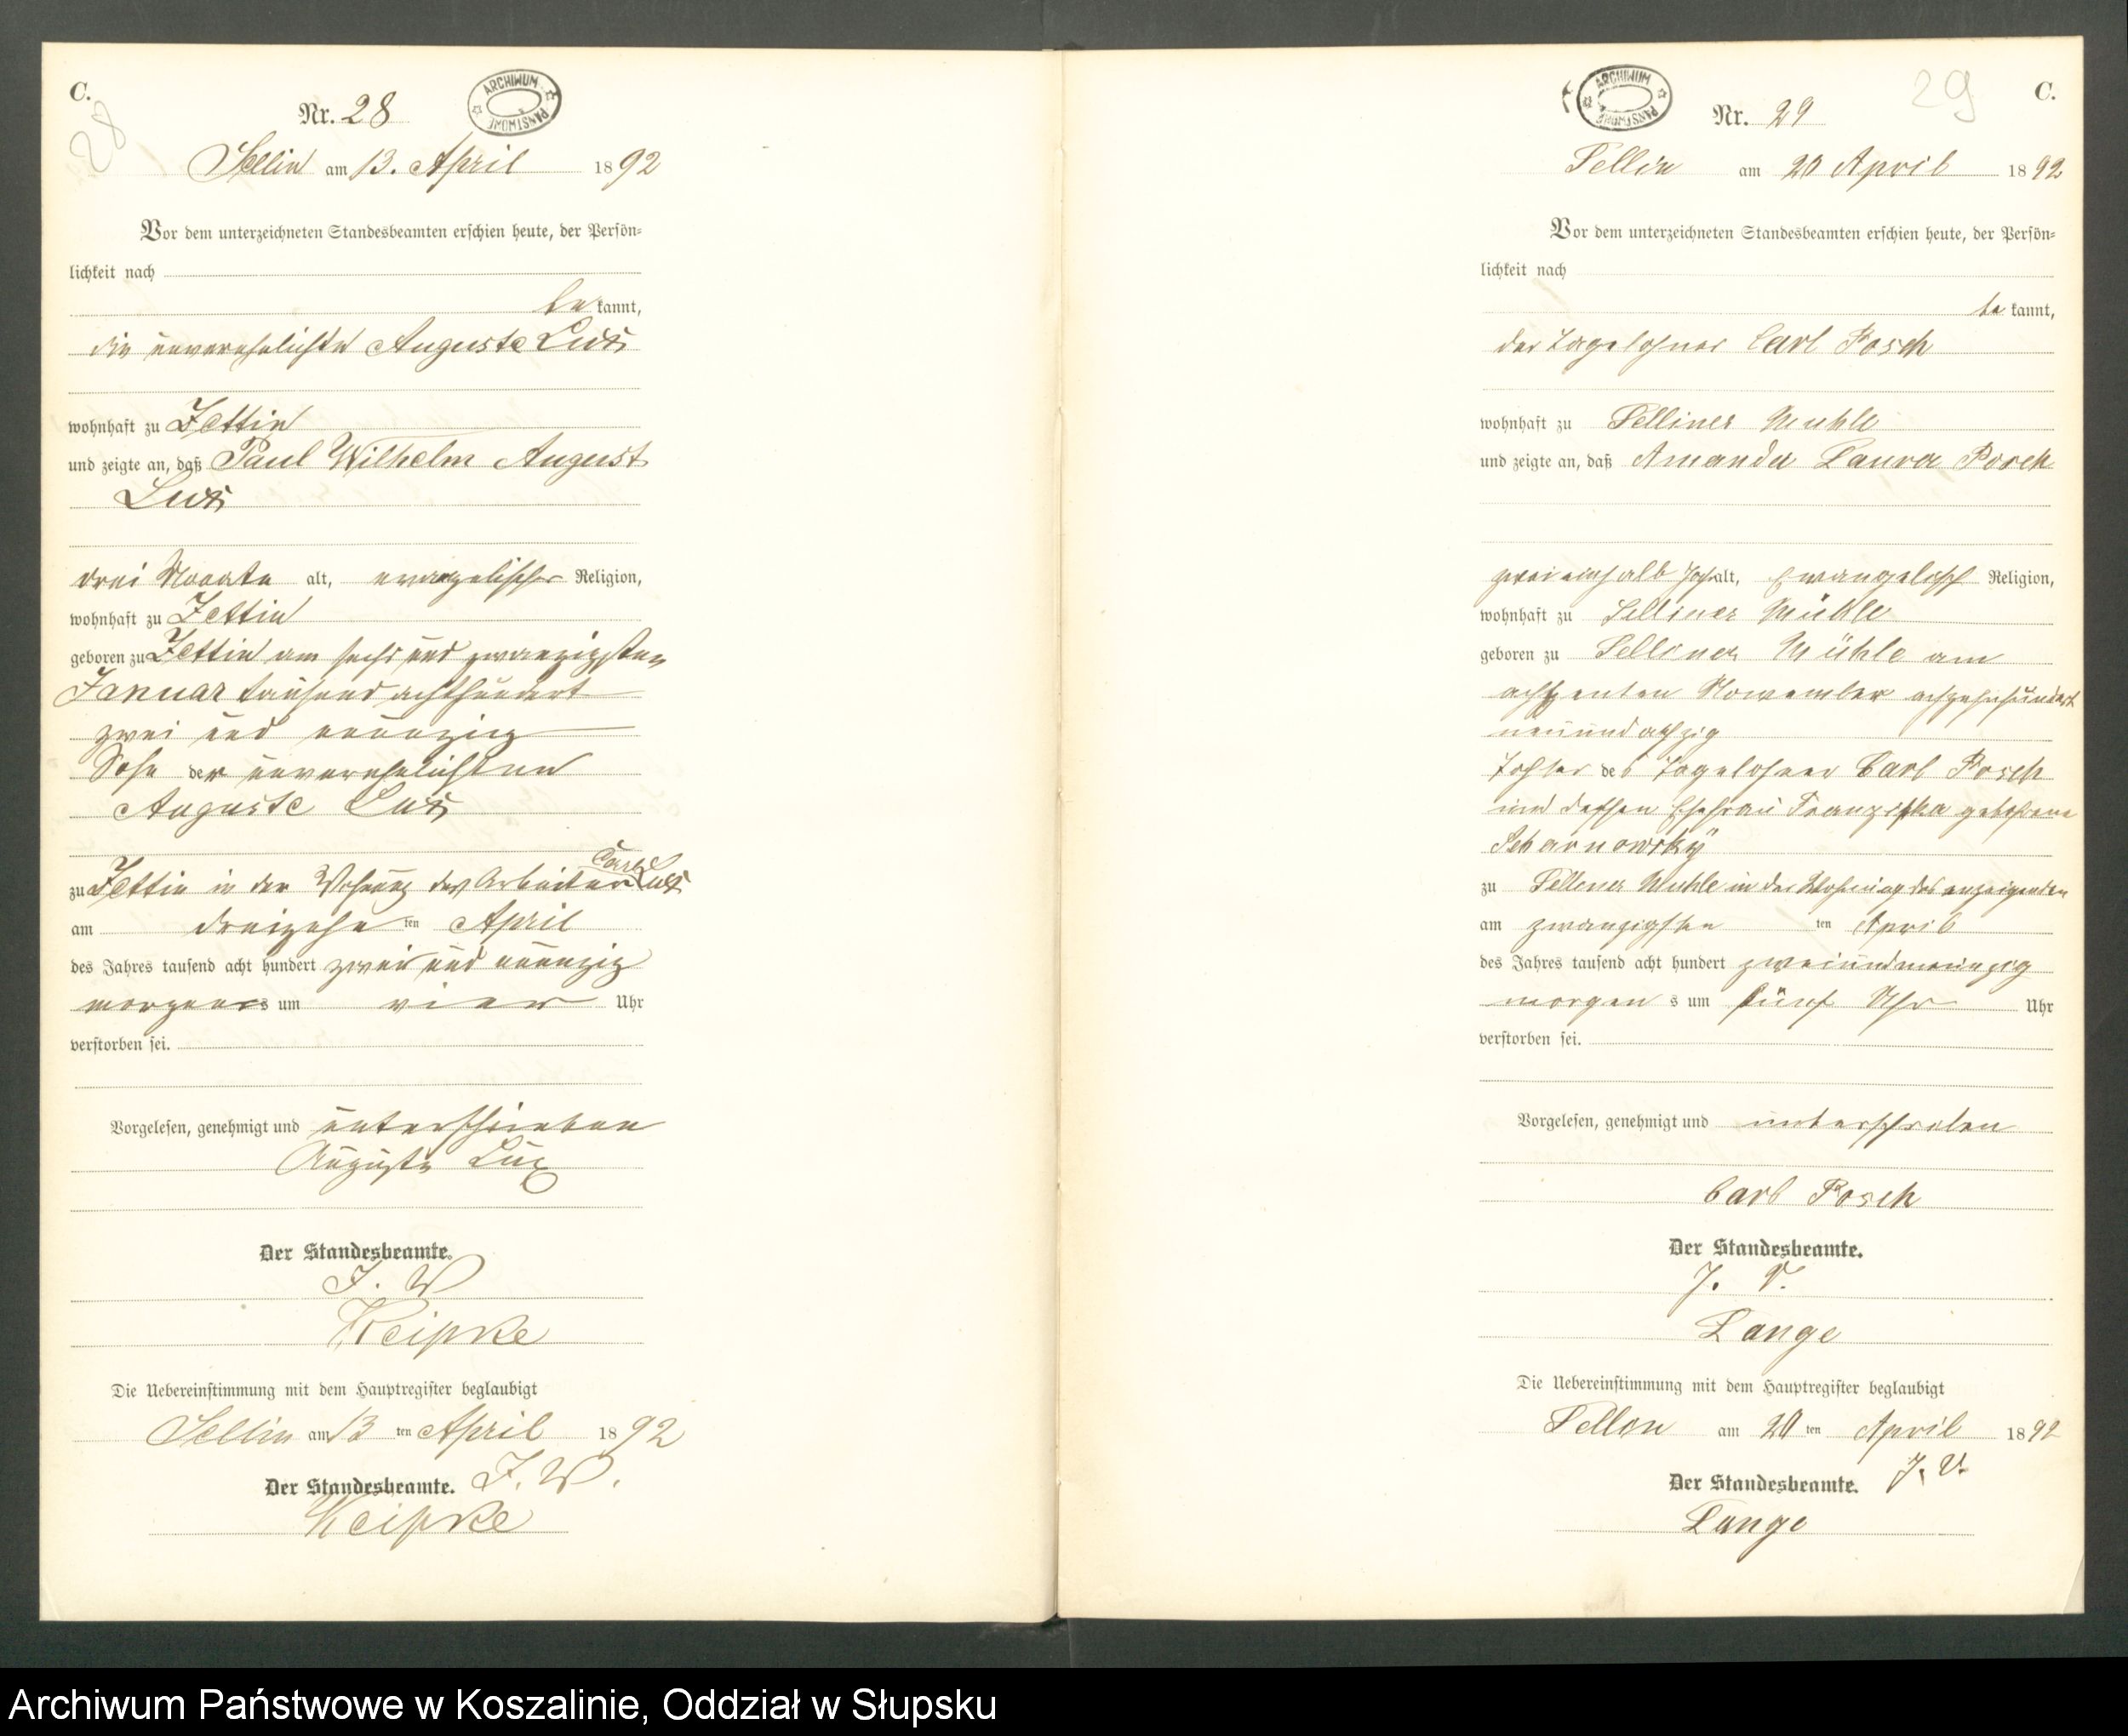 C.
28
Nr. 28
ARCHIWUM PAŃSTWOWE
Sellin am 13. April 1892
Vor dem unterzeichneten Standesbeamten erschien heute, der Persön-
lichkeit nach
be kannt,
die unverehelichte Auguste Lux
wohnhaft zu Zettin
und zeigte an, daß Paul Wilhelm August
Lux
drei Monate alt, evangelischer Religion,
wohnhaft zu Zettin
geboren zu Zettin am sechs und zwanzigsten
Januar tausend achthundert
zwei und neunzig
Sohn der unverehelichten
Auguste Lux
zu Zettin in der Wohnung des Arbeiter Carl Lux
am dreizehn ten April
des Jahres tausend acht hundert zwei und neunzig
morgens um vier Uhr
verstorben sei.
Vorgelesen, genehmigt und unterschrieben
Auguste Lux
Der Standesbeamte.
J. V.
Keipke
Die Uebereinstimmung mit dem Hauptregister beglaubigt
Sellin am 13 ten April 1892
Der Standesbeamte. J. V.
Keipke
29
C.
Nr. 29
ARCHIWUM PAŃSTWOWE
Sellin am 20 April 1892
Vor dem unterzeichneten Standesbeamten erschien heute, der Persön-
lichkeit nach
be kannt,
der Tagelohner Carl Posch
wohnhaft zu Selliner Muhle
und zeigte an, daß Amanda Laura Posch
zweieinhalb Jahr alt, Ewangelisch Religion,
wohnhaft zu Selliner Mühle
geboren zu Selliner Mühle am
achzenten Nowember achzehnhundert
neunundachzig
Tochter des Tagelohner Carl Posch
und dessen Ehefrau Franziska gebohrene
Scharnowsky
zu Selliner Muhle in der Wohnung des anzeigenden
am zwanzigsten ten April
des Jahres tausend acht hundert zweiundneunzig
morgen s um fünf Uhr Uhr
verstorben sei.
Vorgelesen, genehmigt und unterschriben
Carl Posch
Der Standesbeamte.
J. V.
Lange
Die Uebereinstimmung mit dem Hauptregister beglaubigt
Sellin am 20 ten April 1892
Der Standesbeamte. J. V.
Lange
Archiwum Państwowe w Koszalinie, Oddział w Słupsku